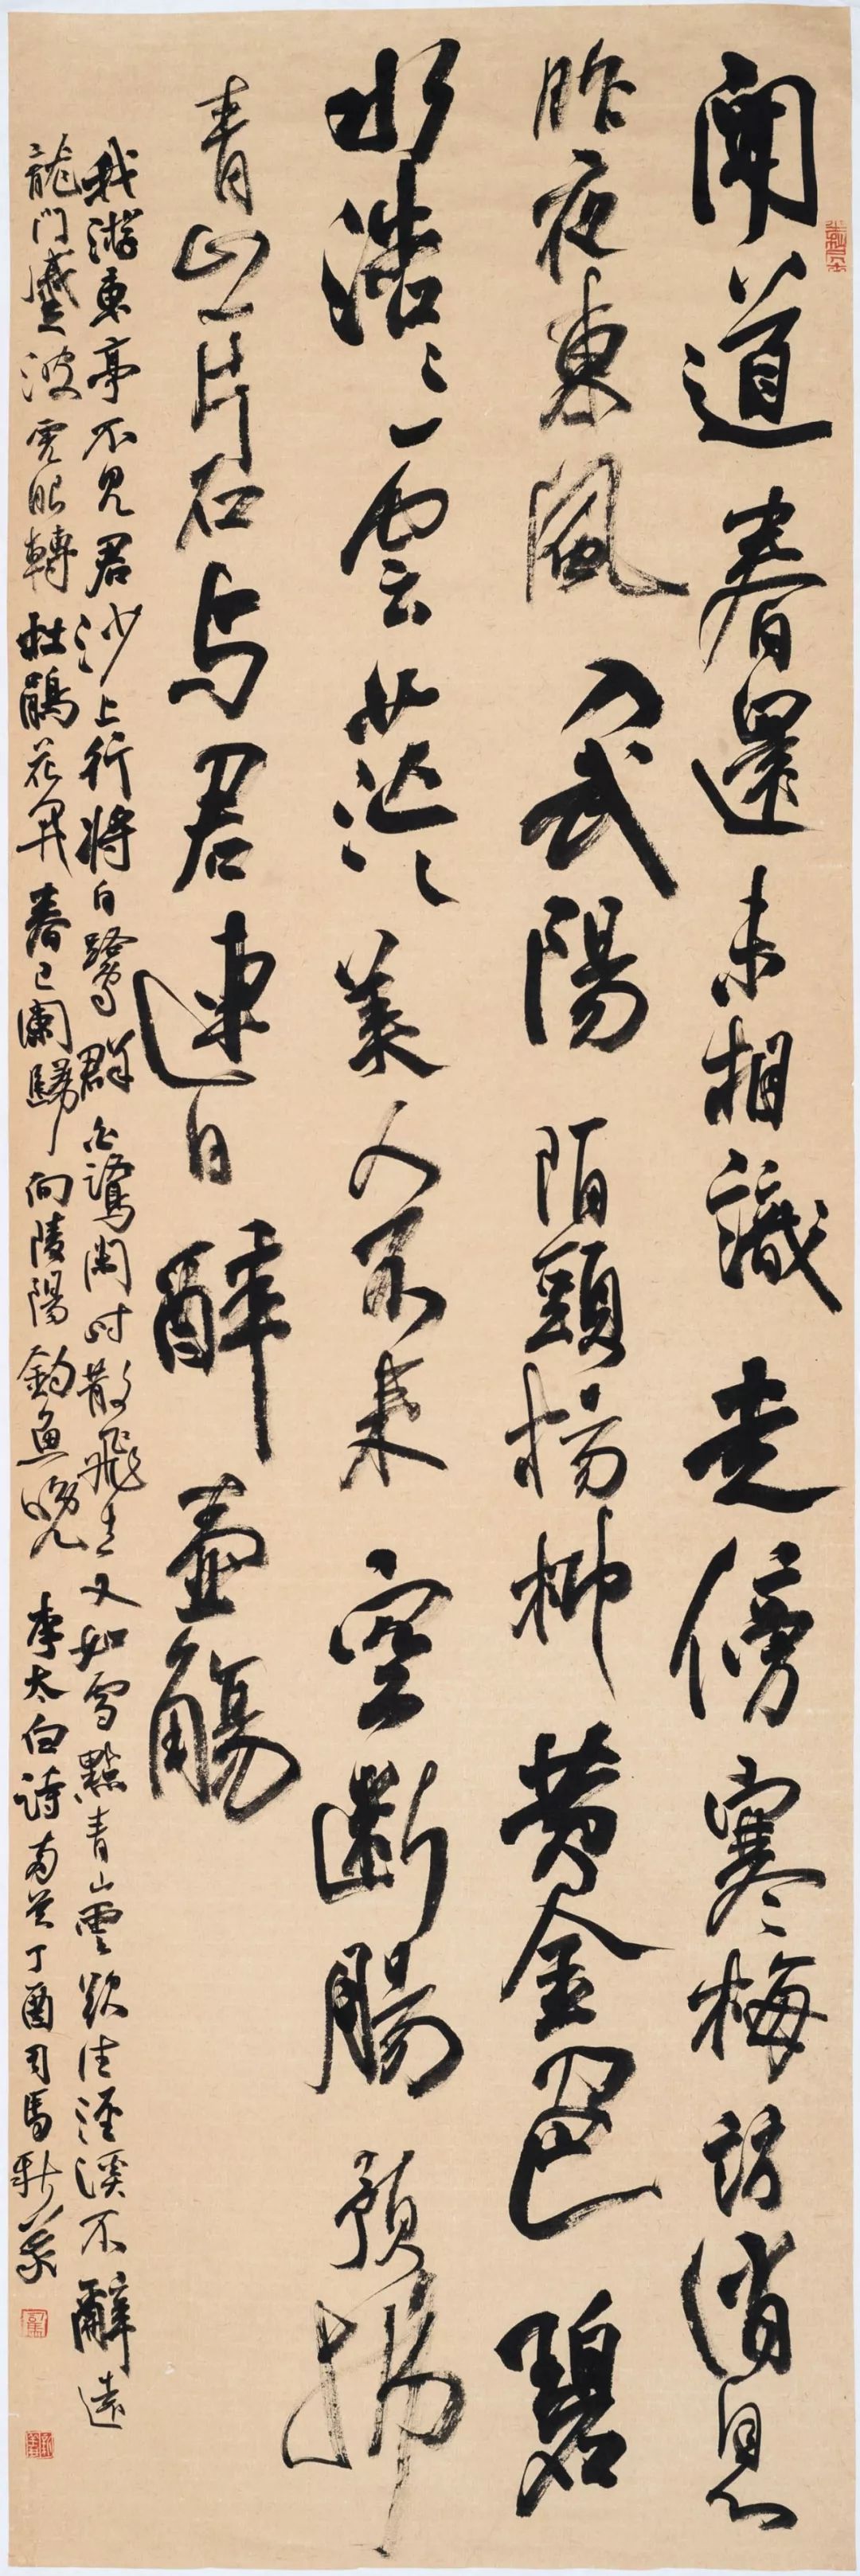 聞道春還未相識走傍寒梅訪消息
昨夜東風入武陽陌頭楊柳黄金色碧
水浩〻雲茫〻美人不来空斷腸預拂
青山一片石与君連日醉壺觴
我游東亭不見君沙上行將白鷺群白鷺閑时散飛去又如雪點青山雲欲往涇溪不辭遠
龍門蹙波虎眼轉杜鵑花開春已闌歸向陵陽釣魚晚 李太白詩 丁酉司馬